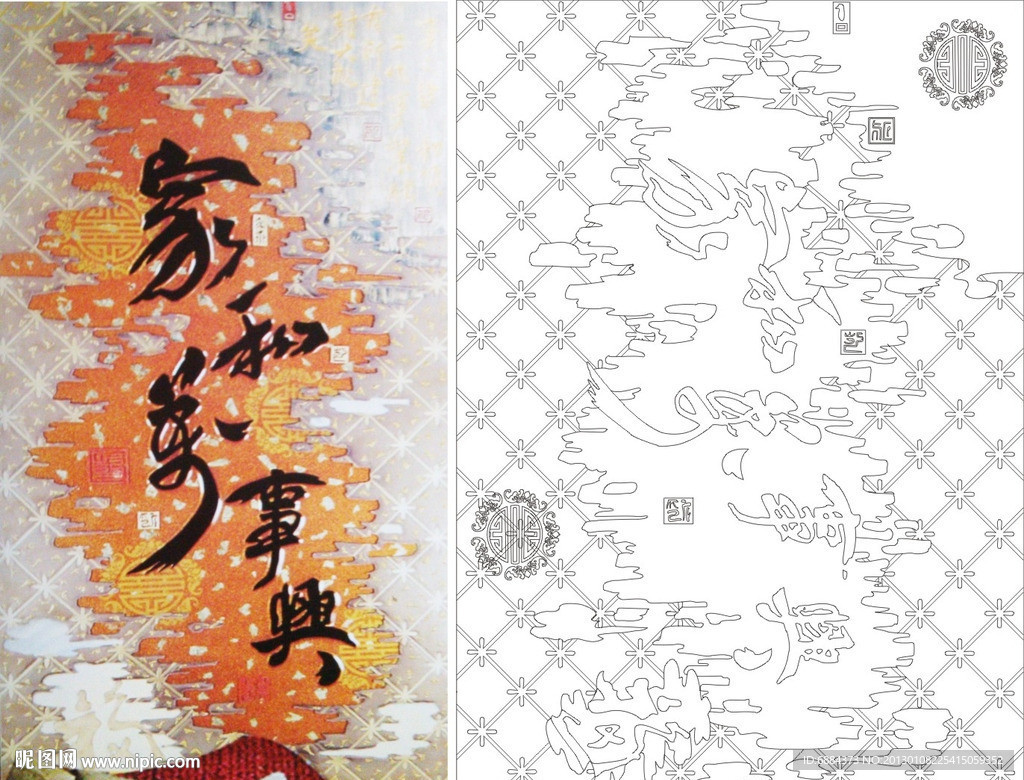 家和
萬事興
昵图网 www.nipic.com
ID:6884373 NO:20130108225415059352